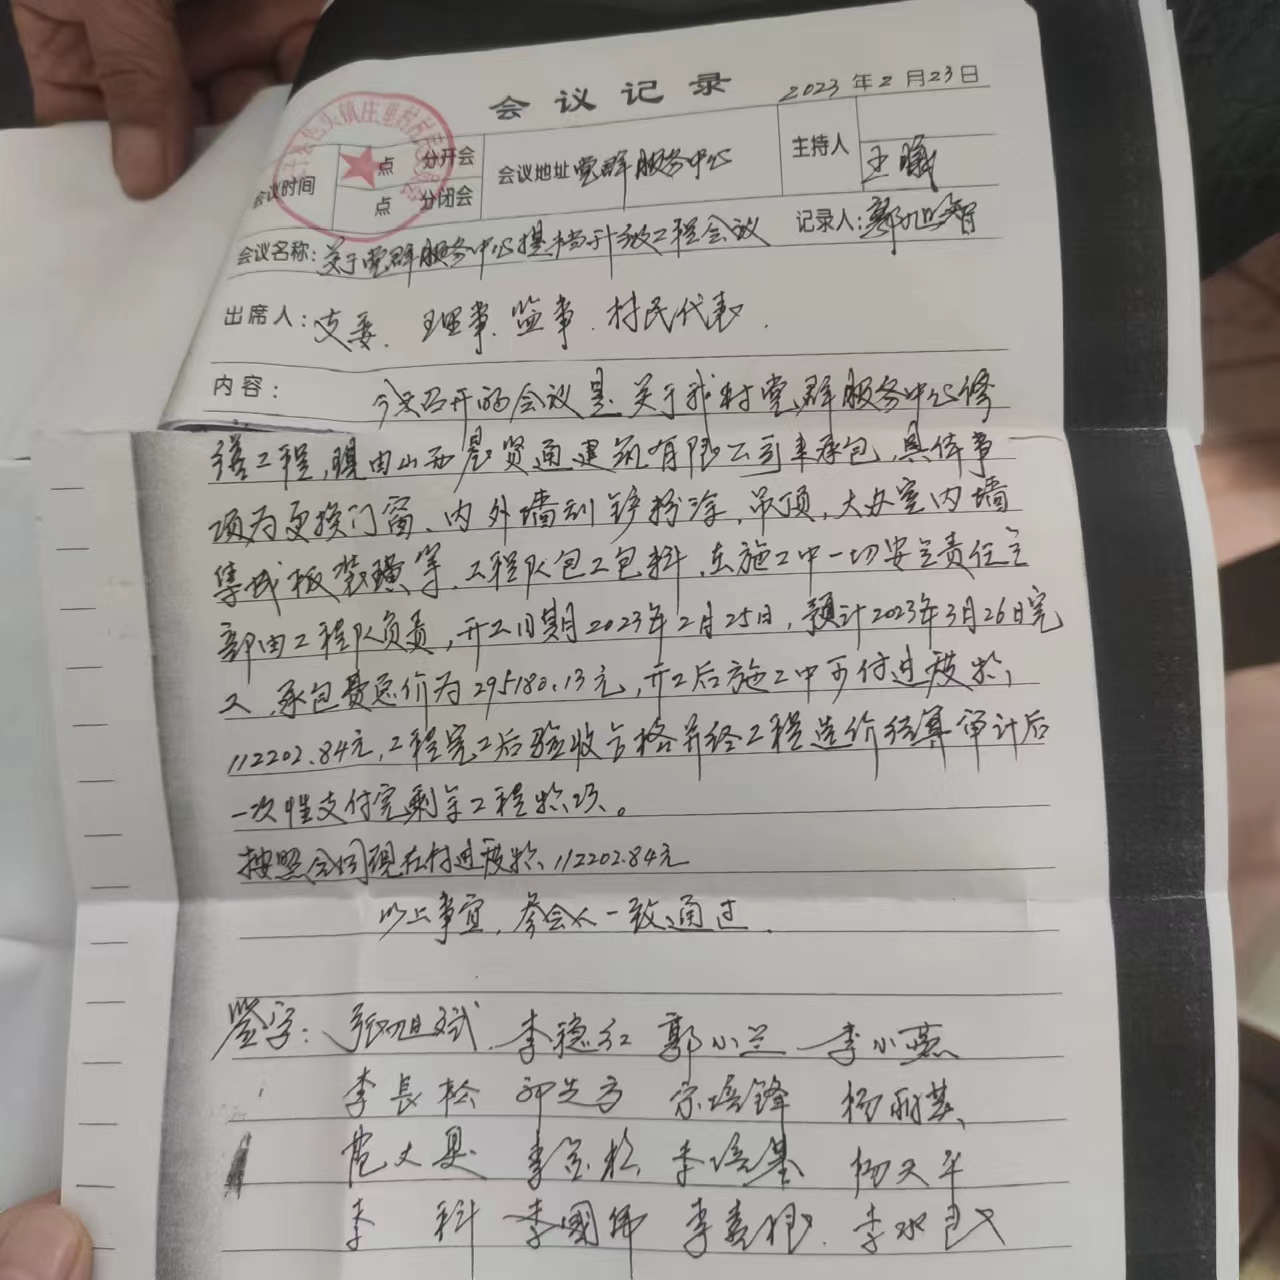 会议记录
2023年2月23日
会议时间
点 分开会
点 分闭会
会议地址 党群服务中心
主持人
王曦
会议名称: 关于党群服务中心提档升级工程会议
记录人: 郭旭智
出席人: 支委、理事、监事、村民代表.
内容: 今天召开的会议是关于我村党群服务中心修
缮工程,现由山西晨贤通建筑有限公司来承包,具体事
项为更换门窗、内外墙刮铲粉涂、吊顶,大办室内墙
集成板装璜等,工程队包工包料,在施工中一切安全责任全
部由工程队负责,开工日期2023年2月25日,预计2023年3月26日完
工,承包费总价为295180.13元,开工后施工中可付过渡款
112202.84元,工程完工后验收合格并经工程造价结算审计后
一次性支付完剩余工程款项。
按照合同现在付过渡款112202.84元
以上事宜,参会人一致通过.
签字: 张旭斌 李稳红 郭小兰 李小燕
李長松 邓先方 宗培锋 杨丽基
李金松 李培基 杨天平
李科 李國伟 李春根 李水民